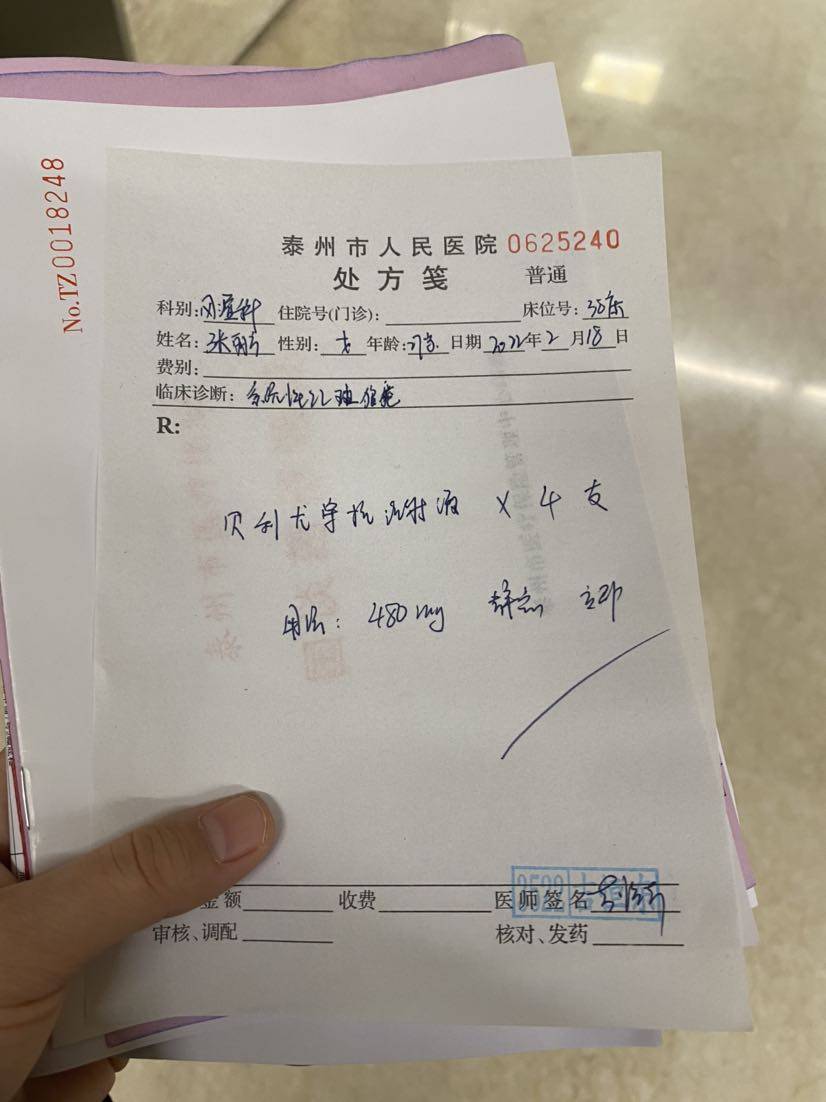 No.TZ0018248
泰州市人民医院 0625240
处方笺 普通
科别:风湿科 住院号(门诊): 床位号:
姓名: 张 性别: 女 年龄: 日期 2022年2月18日
费别:
临床诊断: 系统性红斑狼疮
R:
贝利尤单抗注射液 × 4支
用法: 480mg 静滴 立即
金额 收费 医师签名
审核、调配 核对、发药